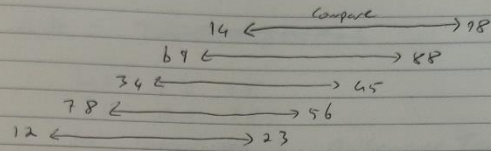 Compare
14 ⟷ 98
69 ⟷ 88
34 ⟷ 45
78 ⟷ 56
12 ⟷ 23